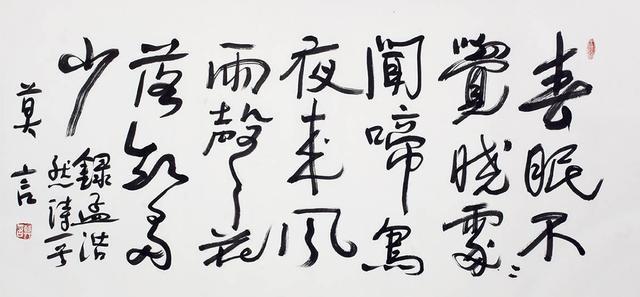 春眠不
覺曉處〻
聞啼鳥
夜来風
雨聲花
落知多
少
錄孟浩
然詩一首
莫言